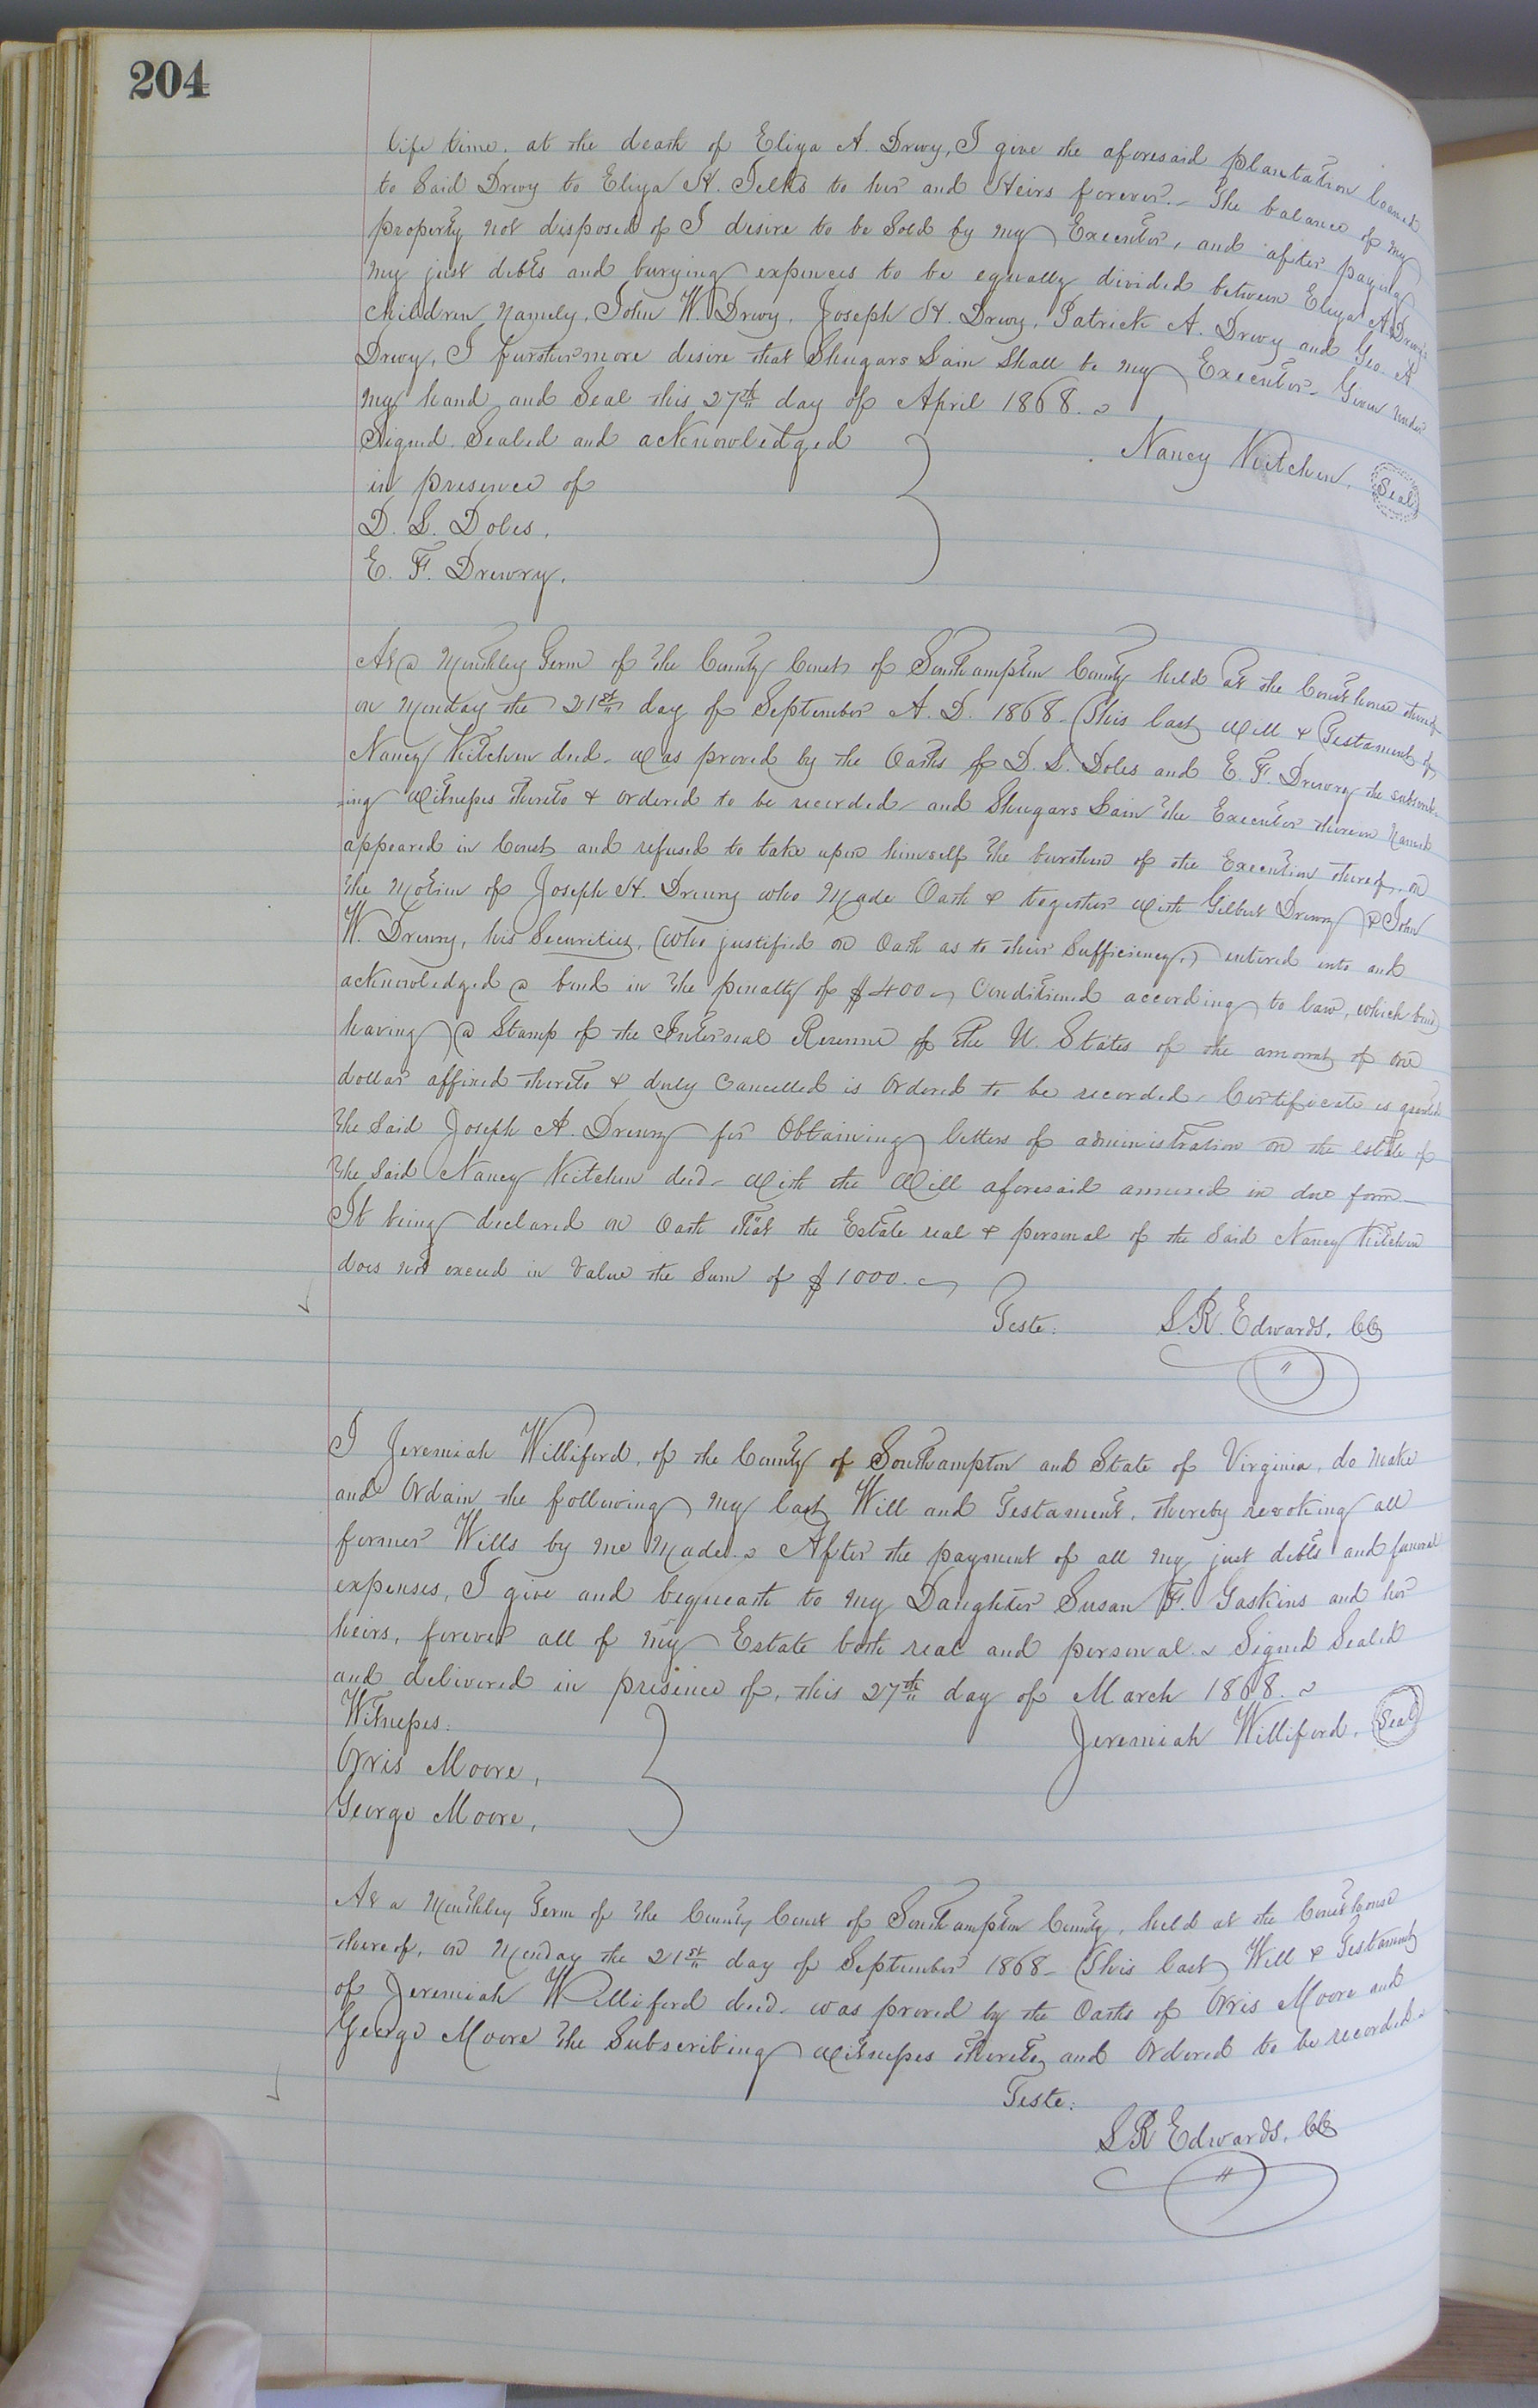 204
life time. at the death of Eliza A. Drewy, I give the aforesaid plantation loaned
to Said Drewy to Eliza H. to her and Heirs forever. – The balance of my
property not disposed of I desire to be Sold by my Executor, and after paying
my just debts and burying expences to be equally divided between Eliza A. Drewy's
children Namely, John W. Drewy, Joseph H. Drewy, Patrick A. Drewy and Geo. A.
Drewy, I furthermore desire that Shugars Lain Shall be my Executor – Given under
my hand and Seal this 27th day of April 1868.
Signed Sealed and acknowledged
Nancy Kitchen. Seal
in presence of
D. S. Doles,
E. F. Drewry.
At a Monthley Term of the County Court of Southampton County held at the Courthouse thereof
on Monday the 21st day of September A. D. 1868 – This last Will & Testament of
Nancy Kitchen decd – was proved by the Oaths of D. S. Doles and E. F. Drewry the subscrib-
-ing Witnesses thereto & ordered to be recorded – and Shugars Lain the Executor therein Named
appeared in Court and refused to take upon himself the burthen of the Execution thereof, on
the Motion of Joseph H. Drewry who Made Oath & together with Gilbert Drewry & John
W. Drewry, his Securities, (who justified on Oath as to their Sufficiency,) entered into and
acknowledged a bond in the penalty of $400 Conditioned according to law, which bond
having a Stamp of the Internal Revenue of the U. States of the amount of one
dollar affixed thereto & duly Cancelled is Ordered to be recorded – Certificate is granted
the Said Joseph H. Drewry for Obtaining letters of administration on the estate of
the Said Nancy Kitchen decd – with the Will aforesaid annexed in due form –
It being declared on Oath that the Estate real & personal of the Said Nancy Kitchen
does not exceed in Value the Sum of $1000.
Teste: L. R. Edwards, CC
I Jeremiah Williford, of the County of Southampton and State of Virginia, do Make
and Ordain the following my last Will and Testament, thereby revoking all
former Wills by me Made. After the payment of all my just debts and funeral
expenses, I give and bequeath to my Daughter Susan F. Gaskins and her
heirs, forever all of my Estate both real and personal. Signed Sealed
and delivered in presince of, this 27th day of March 1868.
Witnesses:
Jeremiah Williford. Seal
Orris Moore,
George Moore,
At a Monthley Term of the County Court of Southampton County, held at the Courthouse
thereof, on Monday the 21st day of September 1868 – This last Will & Testament
of Jeremiah Williford decd – was proved by the Oaths of Orris Moore and
George Moore the Subscribing Witnesses thereto, and Ordered to be recorded.
Teste:
L R Edwards, CC